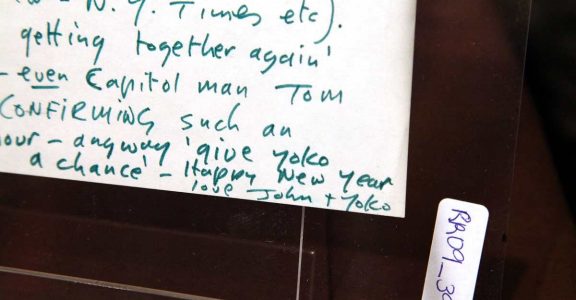 – N. Y. Times etc).
getting together again'
– even Capitol man Tom
CONFIRMING such an
our – anyway 'give Yoko
a chance' – Happy New Year
love John + Yoko
RR09_30